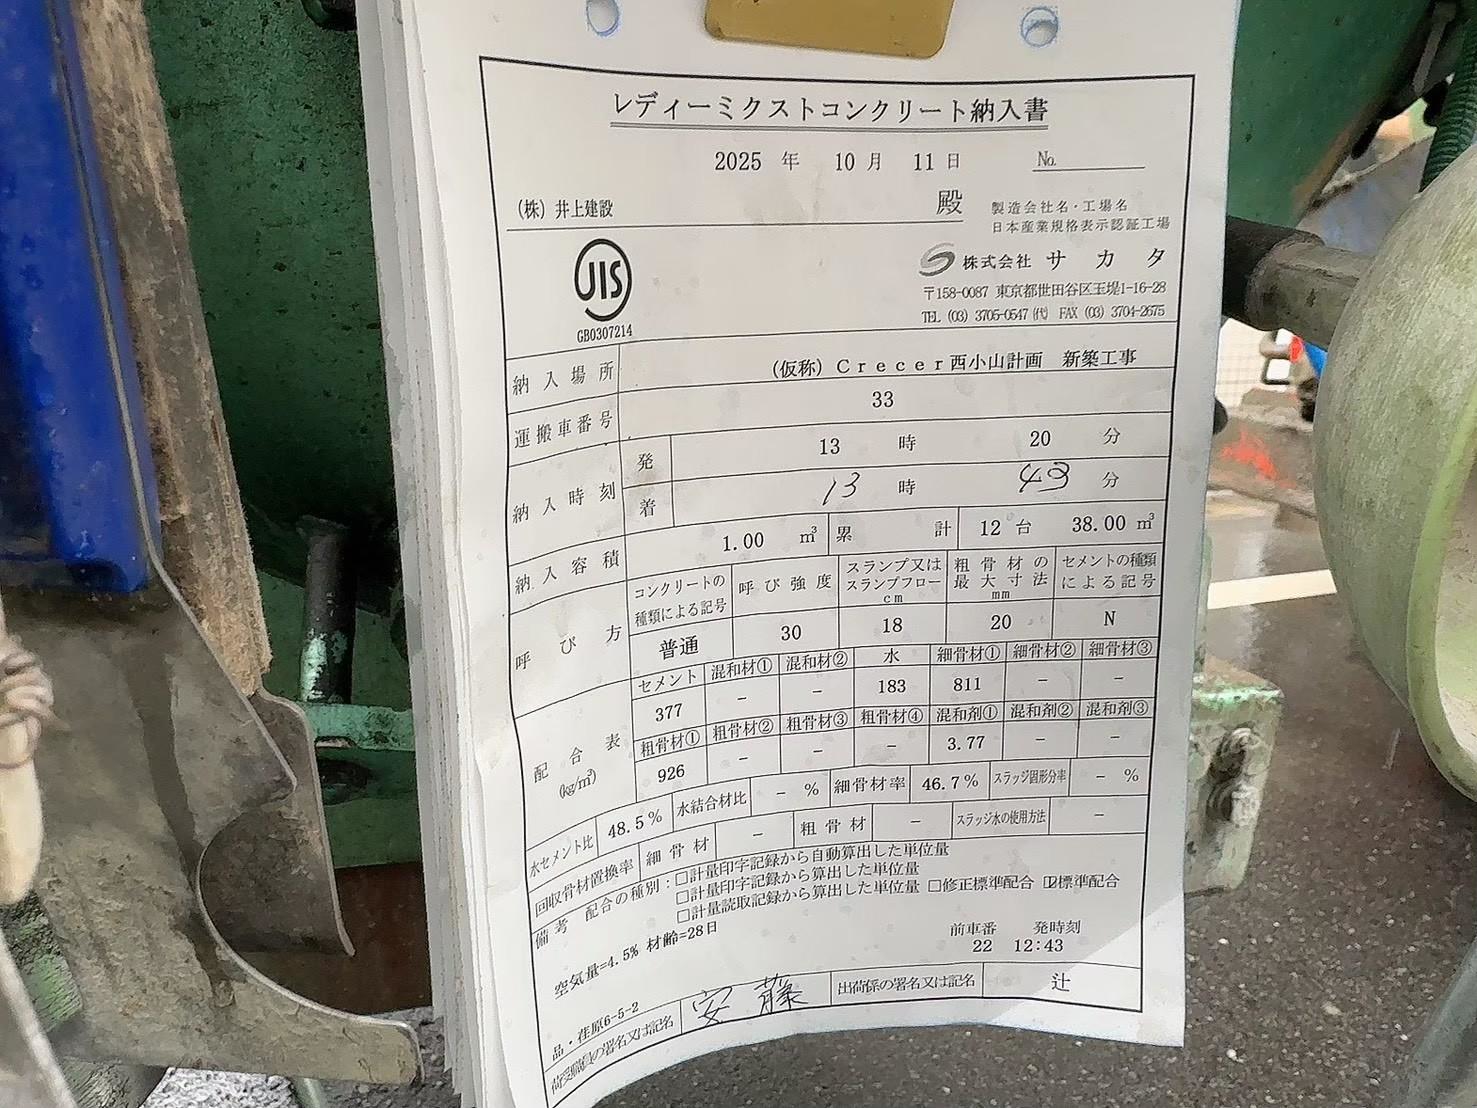 レディーミクストコンクリート納入書
2025 年 10 月 11 日 No.
(株) 井上建設 殿
製造会社名・工場名
日本産業規格表示認証工場
JIS
GB0307214
株式会社 サカタ
〒158-0087 東京都世田谷区玉堤1-16-28
TEL (03) 3705-0547 (代) FAX (03) 3704-2675
納入場所 (仮称) Crecer西小山計画 新築工事
運搬車番号 33
納入時刻 発 13 時 20 分
着 13 時 43 分
納入容積 1.00 m³ 累計 12 台 38.00 m³
呼び方 コンクリートの種類による記号 呼び強度 スランプ又はスランプフロー cm 粗骨材の最大寸法 mm セメントの種類による記号
普通 30 18 20 N
配合表 (kg/m³) セメント 混和材① 混和材② 水 細骨材① 細骨材② 細骨材③
377 - - 183 811 - -
粗骨材① 粗骨材② 粗骨材③ 粗骨材④ 混和剤① 混和剤② 混和剤③
926 - - - 3.77 - -
水セメント比 48.5% 水結合材比 - % 細骨材率 46.7% スラッジ固形分率 - %
回収骨材置換率 細骨材 - 粗骨材 - スラッジ水の使用方法 -
備考 配合の種別:□計量印字記録から自動算出した単位量
□計量印字記録から算出した単位量
□計量読取記録から算出した単位量 □修正標準配合 ☑標準配合
空気量=4.5% 材齢=28日
前車番 発時刻
22 12:43
品・荏原6-5-2
荷受職員の署名又は記名 安藤 出荷係の署名又は記名 辻